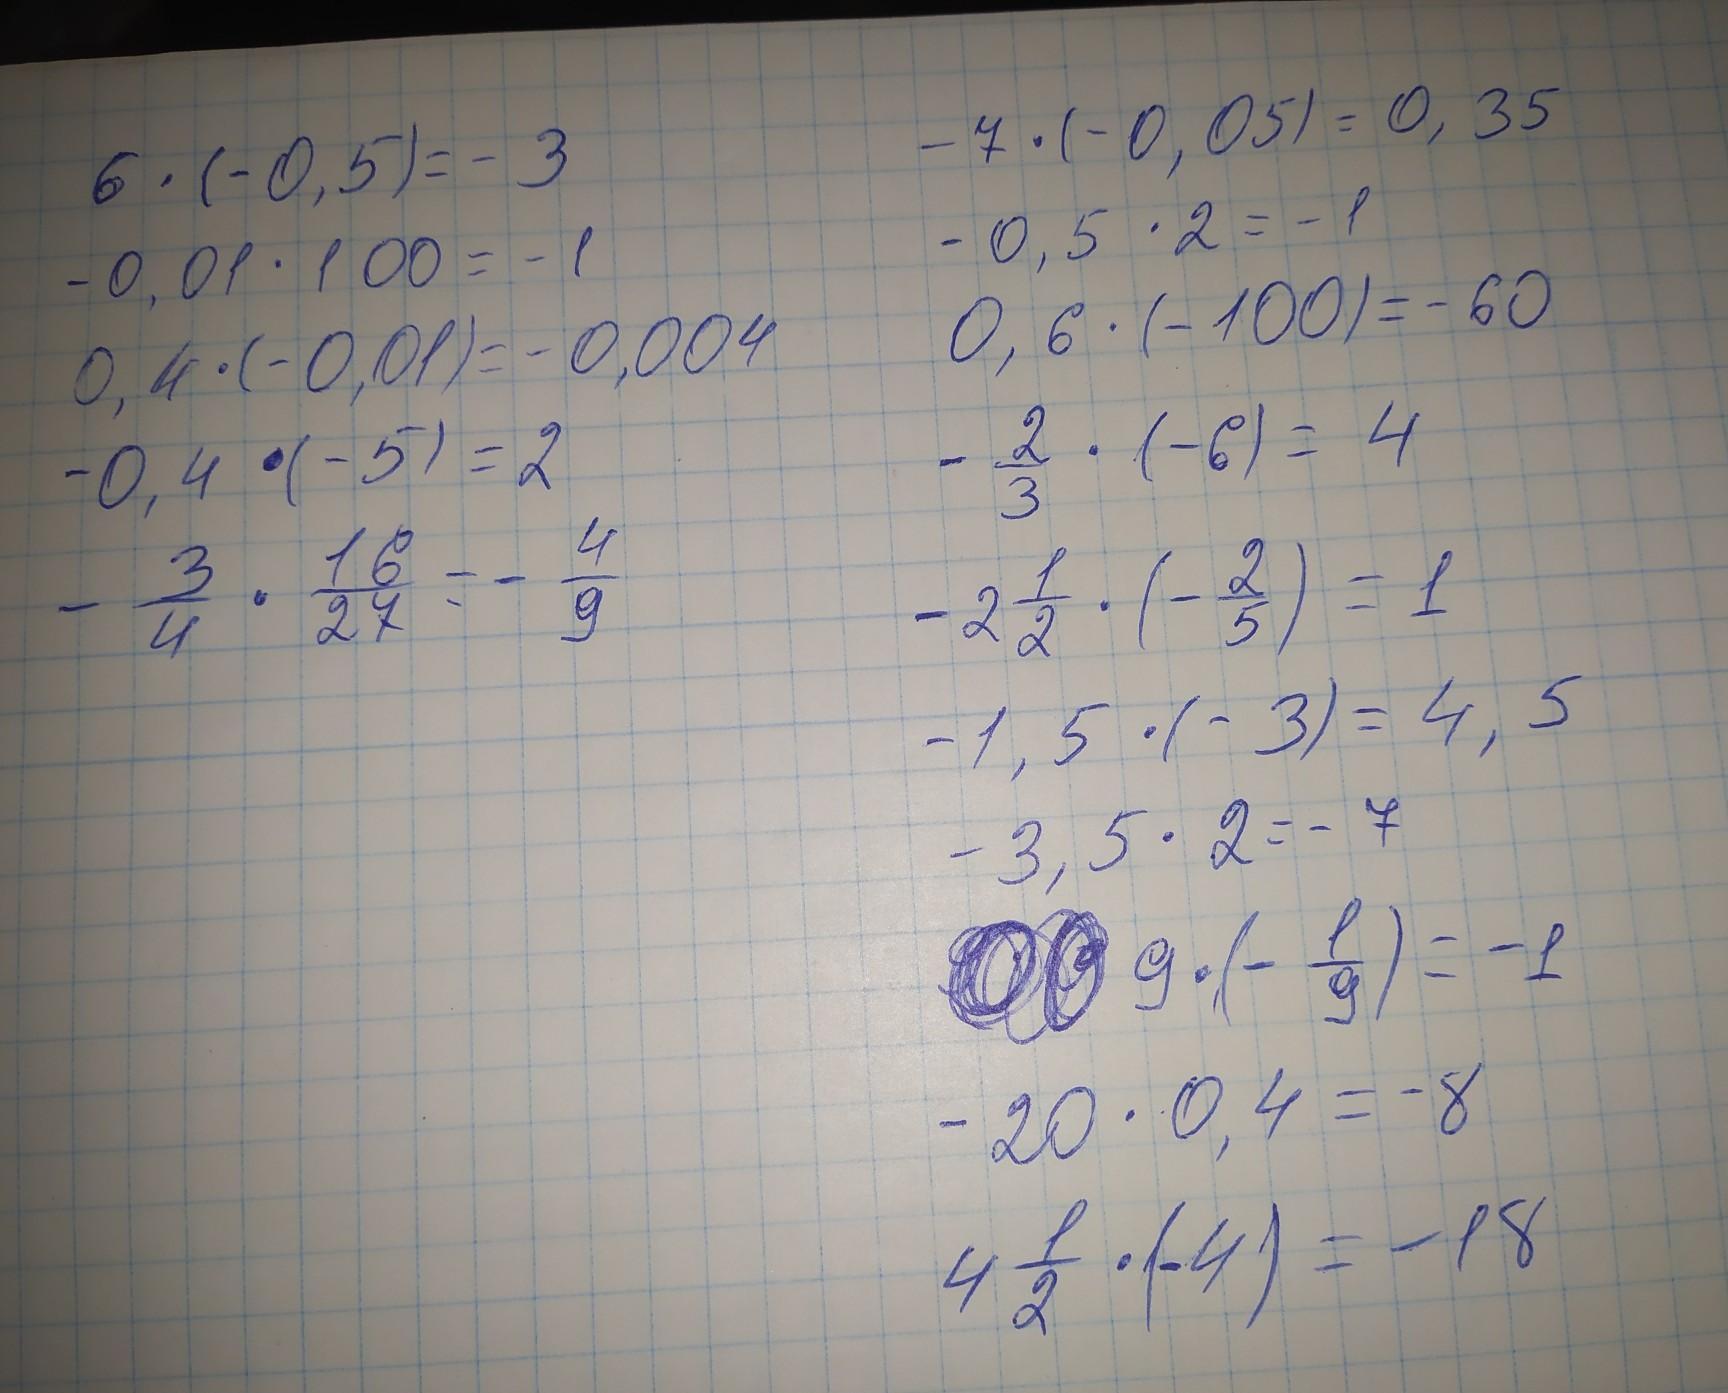 6 · (-0,5) = -3
-0,01 · 100 = -1
0,4 · (-0,01) = -0,004
-0,4 · (-5) = 2
- 3/4 · 16/27 = - 4/9
-7 · (-0,05) = 0,35
-0,5 · 2 = -1
0,6 · (-100) = -60
- 2/3 · (-6) = 4
-2 1/2 · (- 2/5) = 1
-1,5 · (-3) = 4,5
-3,5 · 2 = -7
9 · (- 1/9) = -1
-20 · 0,4 = -8
4 1/2 · (-4) = -18